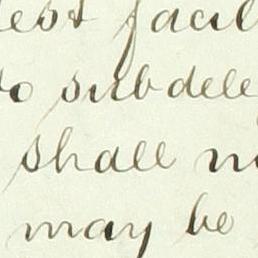 est facil
to subdele
shall n
may be